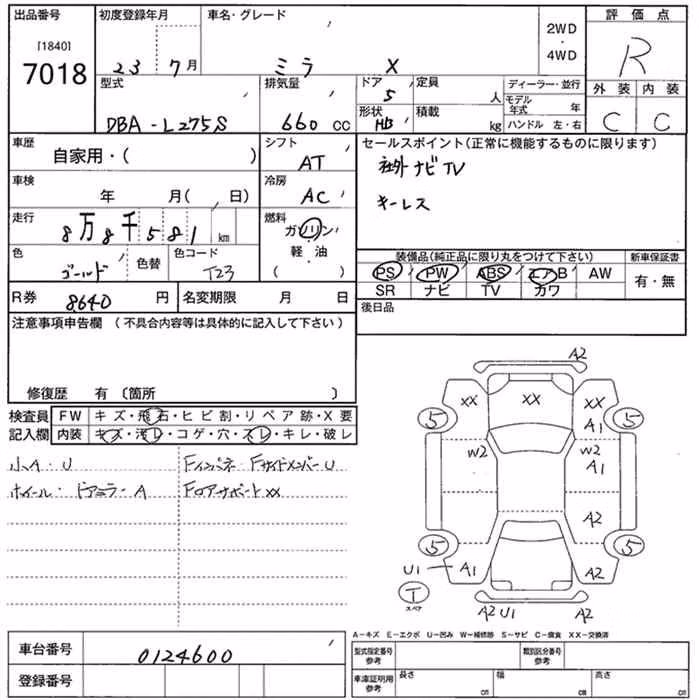 出品番号 初度登録年月 車名・グレード 評価点
[1840] 2WD
7018 23 7月 ミラ X ・ R
4WD
型式 排気量 ドア 定員 ディーラー・並行 外装 内装
5 人 モデル年式 年
DBA-L275S 660 CC 形状 HB 積載 kg ハンドル 左・右 C C
車歴 シフト セールスポイント(正常に機能するものに限ります)
自家用・( ) AT 社外ナビTV
車検 冷房
年 月( 日) AC キーレス
走行 燃料
8万8千581 km ガソリン
色 色替 色コード 軽・油 装備品(純正品に限り丸をつけて下さい) 新車保証書
ゴールド T23 ( ) PS PW ABS エアB AW 有・無
R券 8640 円 名変期限 月 日 SR ナビ TV カワ
注意事項申告欄 (不具合内容等は具体的に記入して下さい) 後日品
修復歴 有 〔箇所 〕
検査員 FW キズ・飛石・ヒビ割・リペア跡・X要
記入欄 内装 キズ・汚レ・コゲ・穴・スレ・キレ・破レ
小A・U Fインパネ FサイドメンバーU
ホイール・ドアミラーA FロアサポートXX
A2
XX XX XX
5 A1 5
W2 W2
A1
A2
5 5
U1 A1 A2
T
スペア A2 U1 A2
A-キズ E-エクボ U-凹み W-補修跡 S-サビ C-腐食 XX-交換済
車台番号 0124600 型式指定番号 参考 類別区分番号 参考
登録番号 車庫証明用 参考 長さ cm 幅 cm 高さ cm